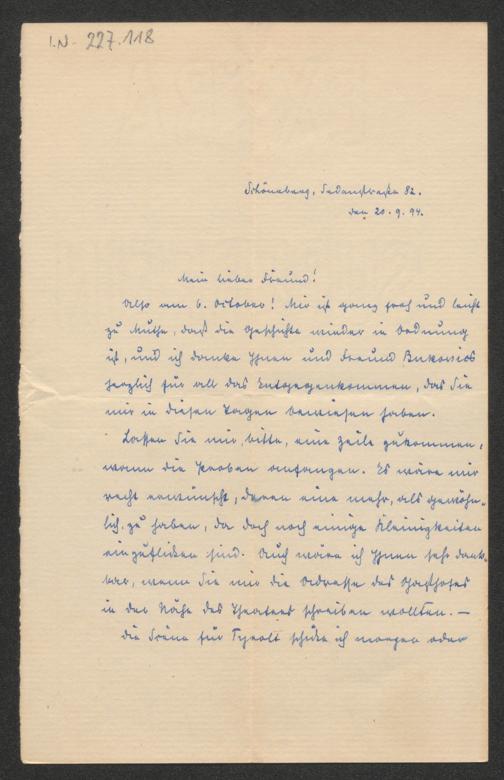 I.N. 227.118
Schöneberg, Sedanstrasse 82.
den 20.9.94.
Mein lieber Freund!
Also am 6. October! Mir ist ganz froh und leicht
zu Muthe, daß die Geschichte wieder in Ordnung
ist, und ich danke Ihnen und Freund Bukovics
herzlich für all das Entgegenkommen, das Sie
mir in diesen Tagen bewiesen haben.
Lassen Sie mir, bitte, eine Zeile zukommen,
wann die Proben anfangen. Es wäre mir
recht erwünscht, deren eine mehr, als gewöhn-
lich, zu haben, da doch noch einige Kleinigkeiten
einzuflicken sind. Auch wäre ich Ihnen sehr dank-
bar, wenn Sie mir die Adresse des Gasthofes
in der Nähe des Theaters schreiben wollten. —
Die Scene für Tyrolt schicke ich morgen oder